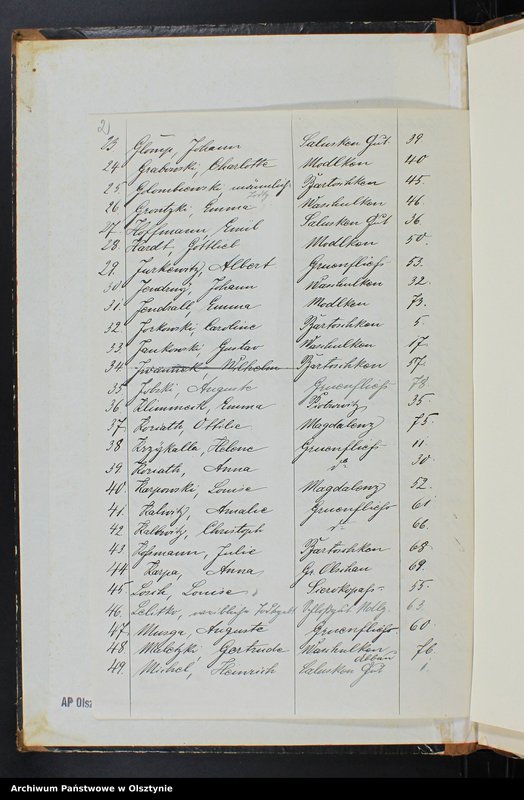 2)
23 Glomp, Johann Salusken Gut. 39.
24. Grabowski, Charlotte Modlken 40
25. Golombiewski männlich Bartoschken 45.
26. Grontzki, Emma Waschulken 46.
27. Hoffmann, Emil Salusken Gut 36.
28. Hardt, Gottlieb Modlken 50.
29. Jurkewitz, Albert Gruenfliess 53.
30. Jendrny, Johann Waschulken 32.
31. Jendrall, Emma Modlken 73.
32. Jorkowski, Caroline Bartoschken 5.
33. Jankowski, Gustav Waschulken 17.
34. Iwannek Wilhelm Bartoschken 57.
35. Jobski, Auguste Gruenfliess 78.
36. Klimmek, Emma Piotrowitz 35.
37. Koriath, Ottilie Magdalenz 75.
38 Krzykalla, Helene Gruenfliess 11.
39 Koriath, Anna do 30
40. Karpowski, Louise Magdalenz 52.
41. Kalwitz, Amalie Gruenfliess 61
42. Kallwitz, Christoph do 66.
43. Kossmann, Julie Bartoschken 68.
44 Karpa Anna Gr. Olschau 69.
45. Losch, Louise Sierokopass 55.
46. Lelitko, weibliche Todtgeb. 63.
47. Musga, Auguste Gruenfliess 60.
48. Maletzki Gertrude Waschulken Abbau 76.
49. Michel, Heinrich Salusken Gut 1.
AP Olsz
Archiwum Państwowe w Olsztynie